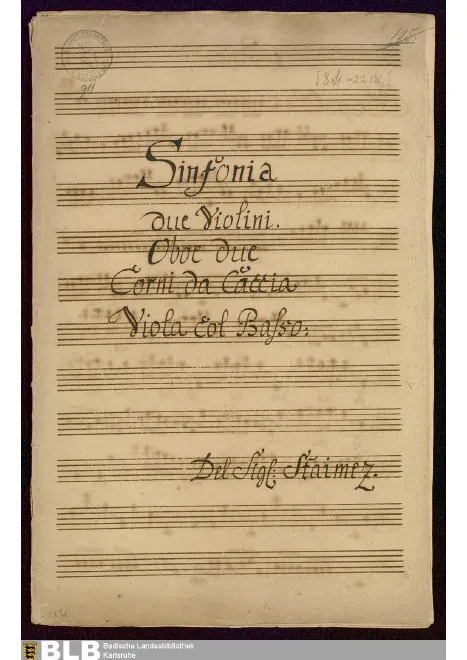 911
[8 St. - 22 Bl.]
Sinfonia
due Violini.
Oboe due
Corni da Caccia
Viola col Basso:
Del Sigl: Staimez.
BLB Badische Landesbibliothek
Karlsruhe